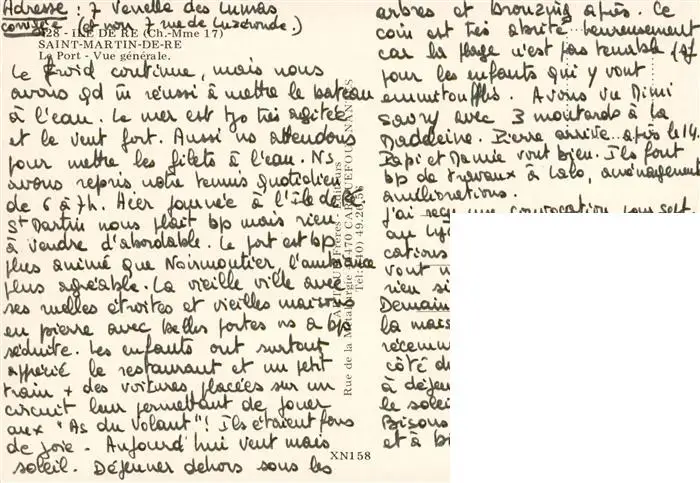 Adresse : 7 Venelle des Lumas
(et non 7 rue de Luzéronde.)
428 - ILE DE RE (Ch.-Mme 17)
SAINT-MARTIN-DE-RE
Le Port - Vue générale.
Le froid continue, mais nous
avons qd m̂ réussi à mettre le bateau
à l'eau. La mer est tjs très agitée
et le vent fort. Aussi ns attendons
pour mettre les filets à l'eau. Ns
avons repris notre tennis quotidien
de 6 à 7h. Hier journée à l'Ile de Ré.
St Martin nous plaît bp mais rien
à vendre d'abordable. Le port est bp
plus animé que Noirmoutier, l'ambiance
plus agréable. La vieille ville avec
ses ruelles étroites et vieilles maisons
en pierre avec belles portes ns a bp
séduite. Les enfants ont surtout
apprécié le restaurant et un petit
train + des voitures placées sur un
circuit leur permettant de jouer
aux "As du Volant"! Ils étaient fous
de joie. Aujourd'hui vent mais
soleil. Déjeuner dehors sous les
Rue de la Métallurgie - 44470 CARQUEFOU - NANTES
Tél. (40) 49.26.56
XN158
arbres et bronzing après. Ce
coin est très abrité heureusement
car la plage n'est pas tenable sf
pour les enfants qui y vont
emmitouflés. Avons vu Mimi
Savry avec 3 moutards à La
Madeleine. Pierre arrive après le 14.
Papi et Mamie vont bien. Ils font
bp de travaux à Lalo, aménagement
améliorations.
J'ai reçu une convocation pour sept.
au Ly
cations
vont
rien si
Demain
la mais
récemm
côté d
à déjeu
le solei
Bisous
et à bi